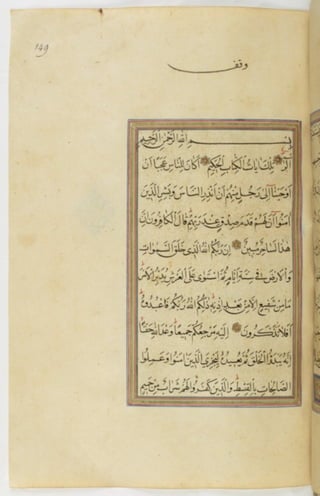 149
وقف
بسم الله الرحمن الرحيم
الر تلك ايات الكتاب الحكيم اكان للناس عجبا ان
اوحينا الى رجل منهم ان انذر الناس وبشر الذين
امنوا ان لهم قدم صدق عند ربهم قال الكافرون ان
هذا لساحر مبين ان ربكم الله الذي خلق السموات
والارض في ستة ايام ثم استوى على العرش يدبر الامر
ما من شفيع الا من بعد اذنه ذلكم الله ربكم فاعبدوه
افلا تذكرون اليه مرجعكم جميعا وعد الله حقا
انه يبدؤا الخلق ثم يعيده ليجزي الذين امنوا وعملوا
الصالحات بالقسط والذين كفروا لهم شراب من حميم